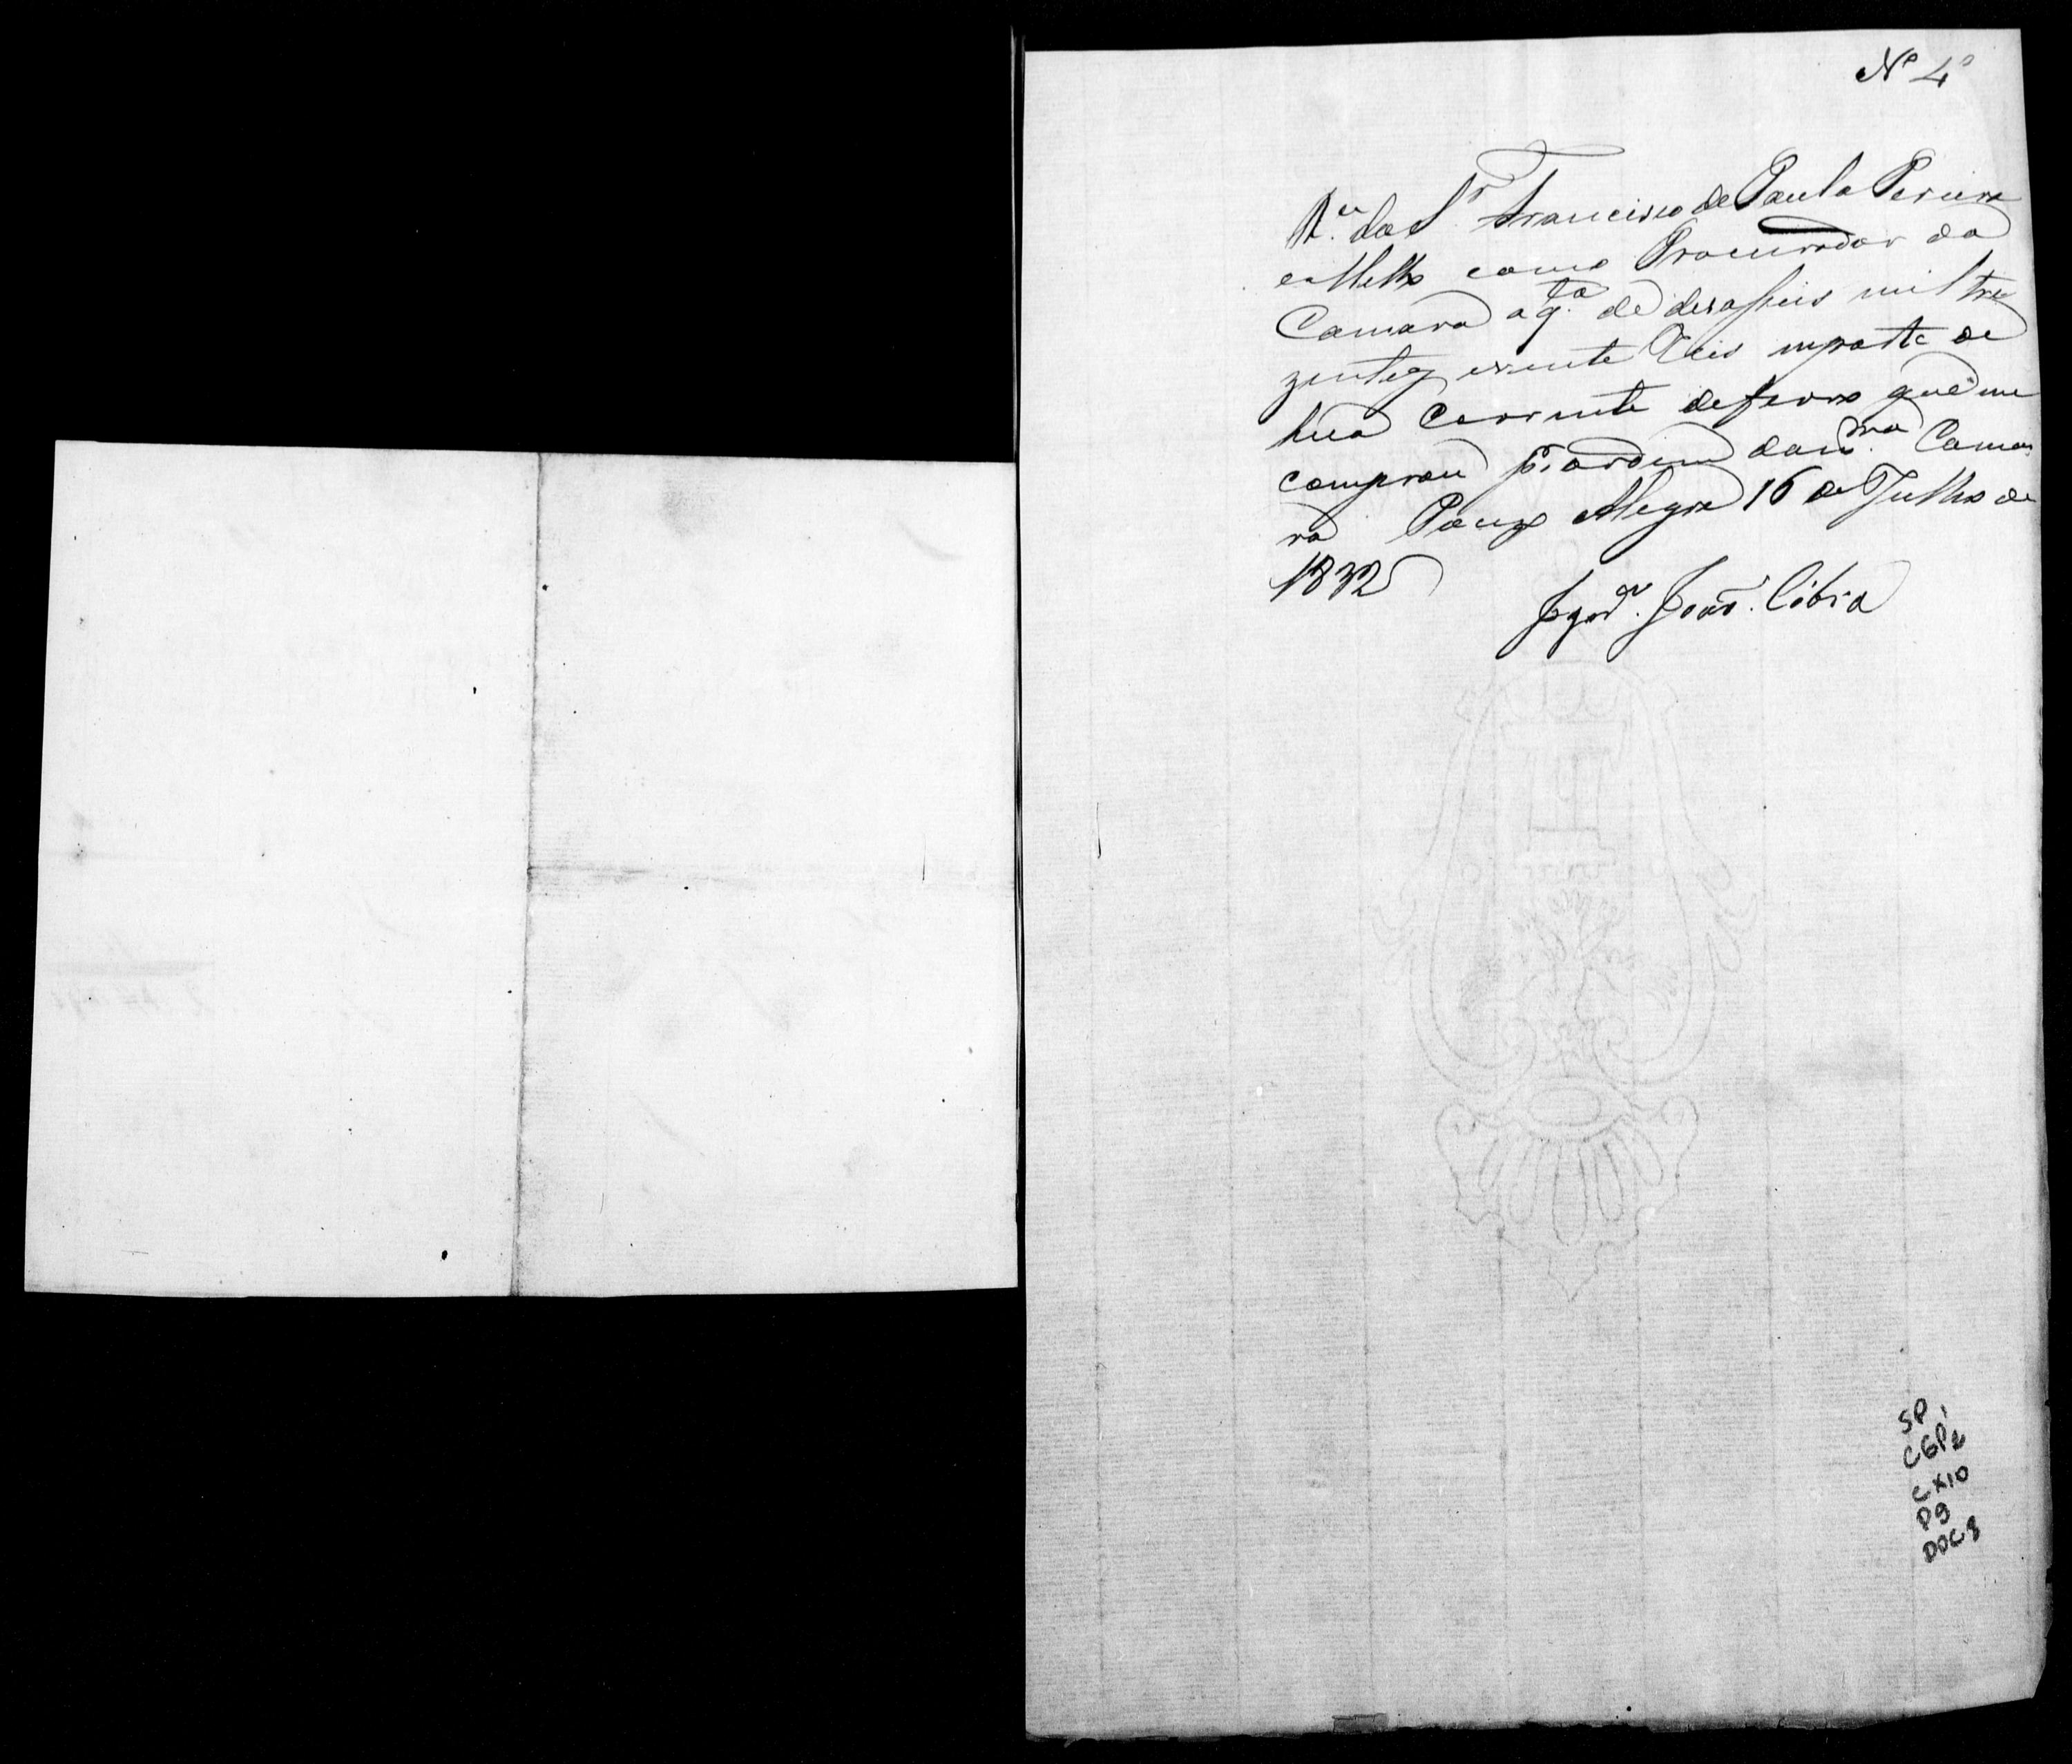 Nº 4º
R.ce do Sr. Francisco de Paula Pereira
e Mello como Procurador da
Camara a q.ta de desaseis mil tre
zentos e vinte Reis importe de
hua Corrente de ferro que me
comprou p.r ordem da m.ma Cama
ra Pouzo Alegre 16 de Julho de
1832
João Cobra
SP1
CGP2
CX10
P9
DOC8